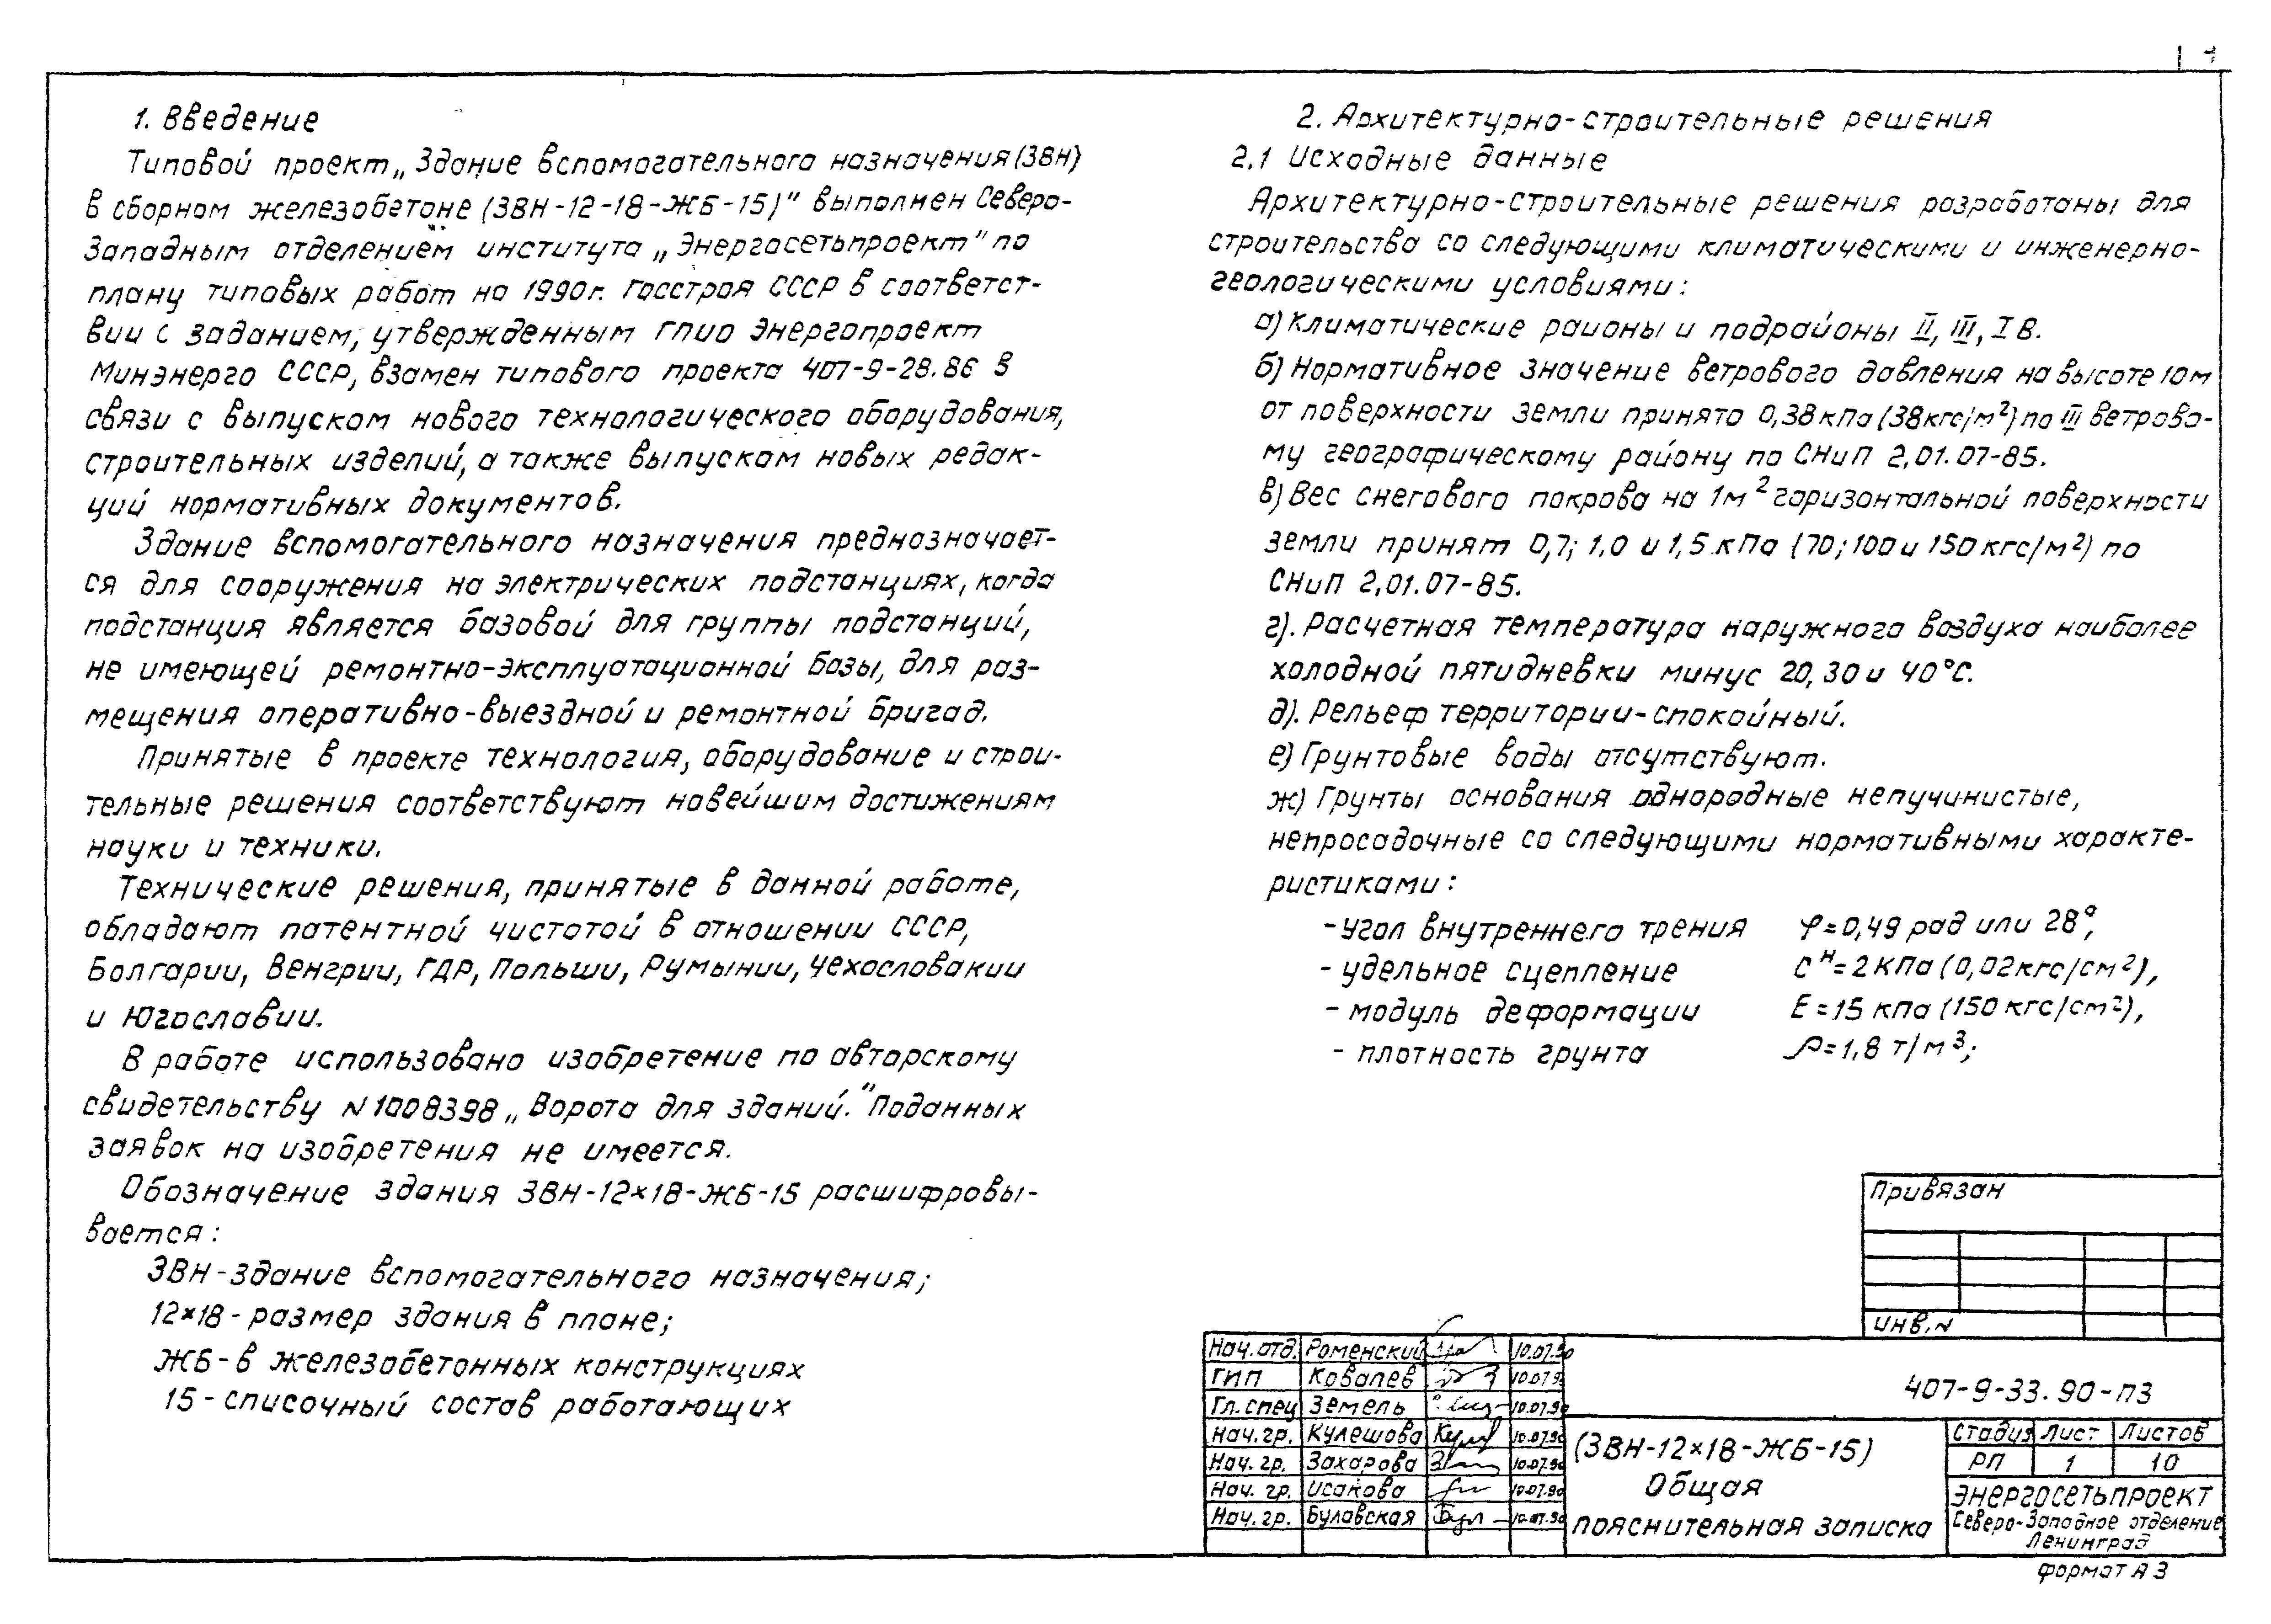 1. Введение
Типовой проект „Здание вспомогательного назначения (ЗВН)
в сборном железобетоне (ЗВН-12-18-ЖБ-15)" выполнен Северо-
Западным отделением института „Энергосетьпроект" по
плану типовых работ на 1990г. Госстроя СССР в соответст-
вии с заданием, утвержденным ГПИО Энергопроект
Минэнерго СССР, взамен типового проекта 407-9-28.86 в
связи с выпуском нового технологического оборудования,
строительных изделий, а также выпуском новых редак-
ций нормативных документов.
Здание вспомогательного назначения предназначает-
ся для сооружения на электрических подстанциях, когда
подстанция является базовой для группы подстанций,
не имеющей ремонтно-эксплуатационной базы, для раз-
мещения оперативно-выездной и ремонтной бригад.
Принятые в проекте технология, оборудование и строи-
тельные решения соответствуют новейшим достижениям
науки и техники.
Технические решения, принятые в данной работе,
обладают патентной чистотой в отношении СССР,
Болгарии, Венгрии, ГДР, Польши, Румынии, Чехословакии
и Югославии.
В работе использовано изобретение по авторскому
свидетельству N 1008398 „Ворота для зданий." Поданных
заявок на изобретения не имеется.
Обозначение здания ЗВН-12×18-ЖБ-15 расшифровы-
вается:
ЗВН-здание вспомогательного назначения;
12×18 - размер здания в плане;
ЖБ - в железобетонных конструкциях
15 - списочный состав работающих
2. Архитектурно-строительные решения
2.1 Исходные данные
Архитектурно-строительные решения разработаны для
строительства со следующими климатическими и инженерно-
геологическими условиями:
а) Климатические районы и подрайоны II, III, I В.
б) Нормативное значение ветрового давления на высоте 10м
от поверхности земли принято 0,38 кПа (38кгс/м²) по III ветрово-
му географическому району по СНиП 2,01.07-85.
в) Вес снегового покрова на 1м² горизонтальной поверхности
земли принят 0,7; 1,0 и 1,5 кПа (70; 100 и 150 кгс/м²) по
СНиП 2,01.07-85.
г). Расчетная температура наружного воздуха наиболее
холодной пятидневки минус 20, 30 и 40°С.
д). Рельеф территории-спокойный.
е) Грунтовые воды отсутствуют.
ж) Грунты основания однородные непучинистые,
непросадочные со следующими нормативными характе-
ристиками:
- угол внутреннего трения φ=0,49 рад или 28°,
- удельное сцепление Cᴴ=2 КПа (0,02кгс/см²),
- модуль деформации E=15 кПа (150 кгс/см²),
- плотность грунта ρ=1,8 т/м³;
Привязан
Инв. N
Нач. отд. Роменский 10.07.90
ГИП Ковалев 10.07.9
Гл. спец Земель 10.07.90
Нач. гр. Кулешова 10.07.90
Нач. гр. Захарова 10.07.90
Нач. гр. Исакова 10.07.90
Нач. гр. Булавская 10.07.90
407-9-33.90-ПЗ
(ЗВН-12×18-ЖБ-15)
Общая
пояснительная записка
Стадия Лист Листов
РП 1 10
Энергосетьпроект
Северо-Западное отделение
Ленинград
формат А3